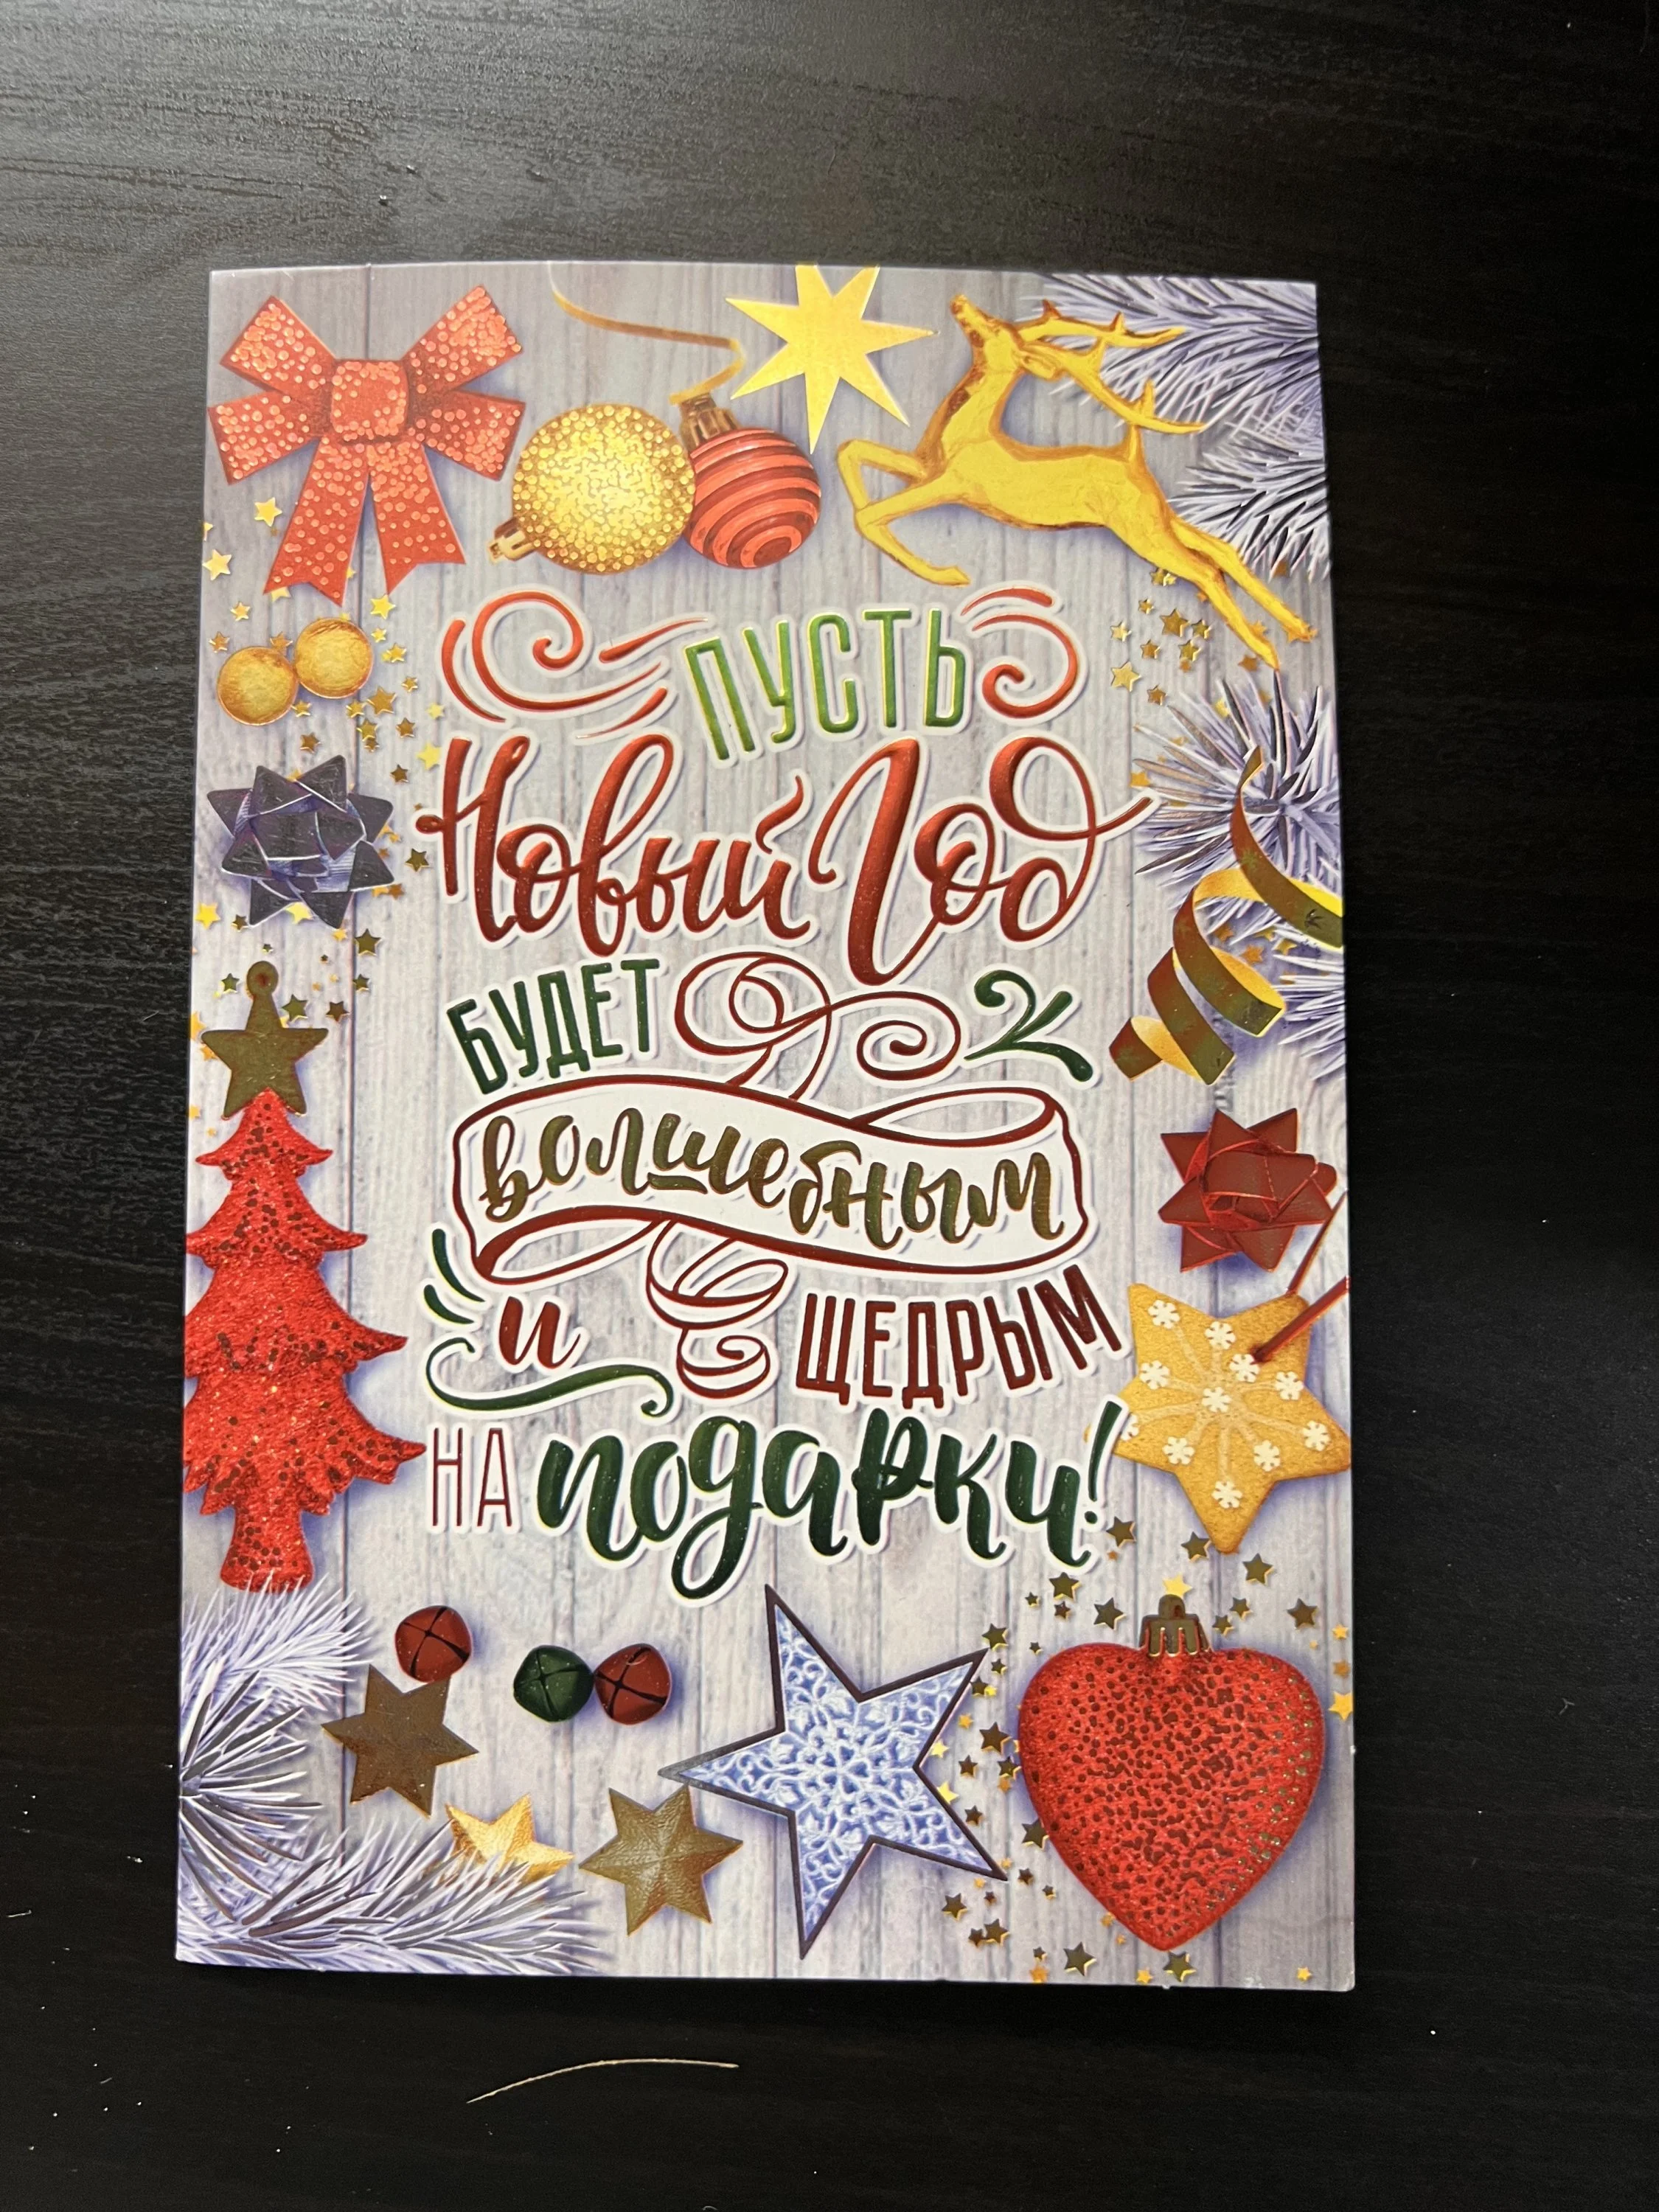 ПУСТЬ
Новый Год
БУДЕТ
волшебным
и ЩЕДРЫМ
НА подарки!